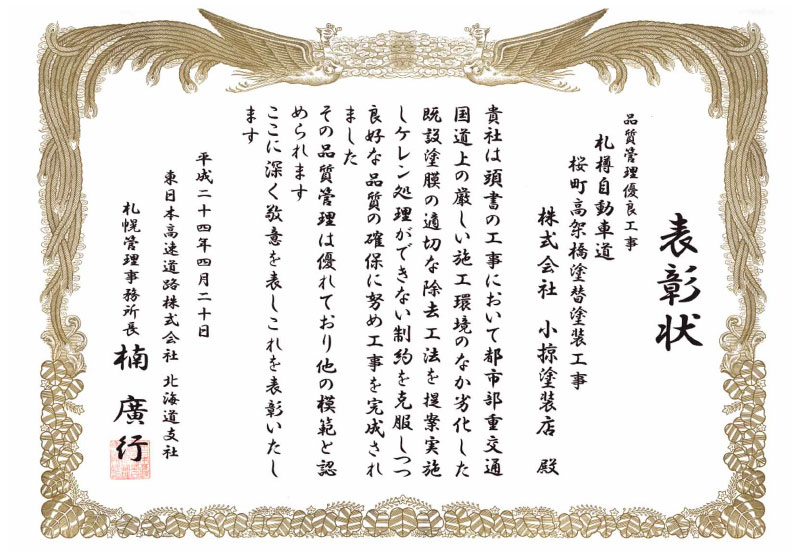 表彰状
品質管理優良工事
札樽自動車道
桜町高架橋塗替塗装工事
株式会社 小掠塗装店 殿
貴社は頭書の工事において都市部重交通
国道上の厳しい施工環境のなか劣化した
既設塗膜の適切な除去工法を提案実施
しケレン処理ができない制約を克服しつつ
良好な品質の確保に努め工事を完成され
ました
その品質管理は優れており他の模範と認
められます
ここに深く敬意を表しこれを表彰いたし
ます
平成二十四年四月二十日
東日本高速道路株式会社 北海道支社
札幌管理事務所長 楠 廣行